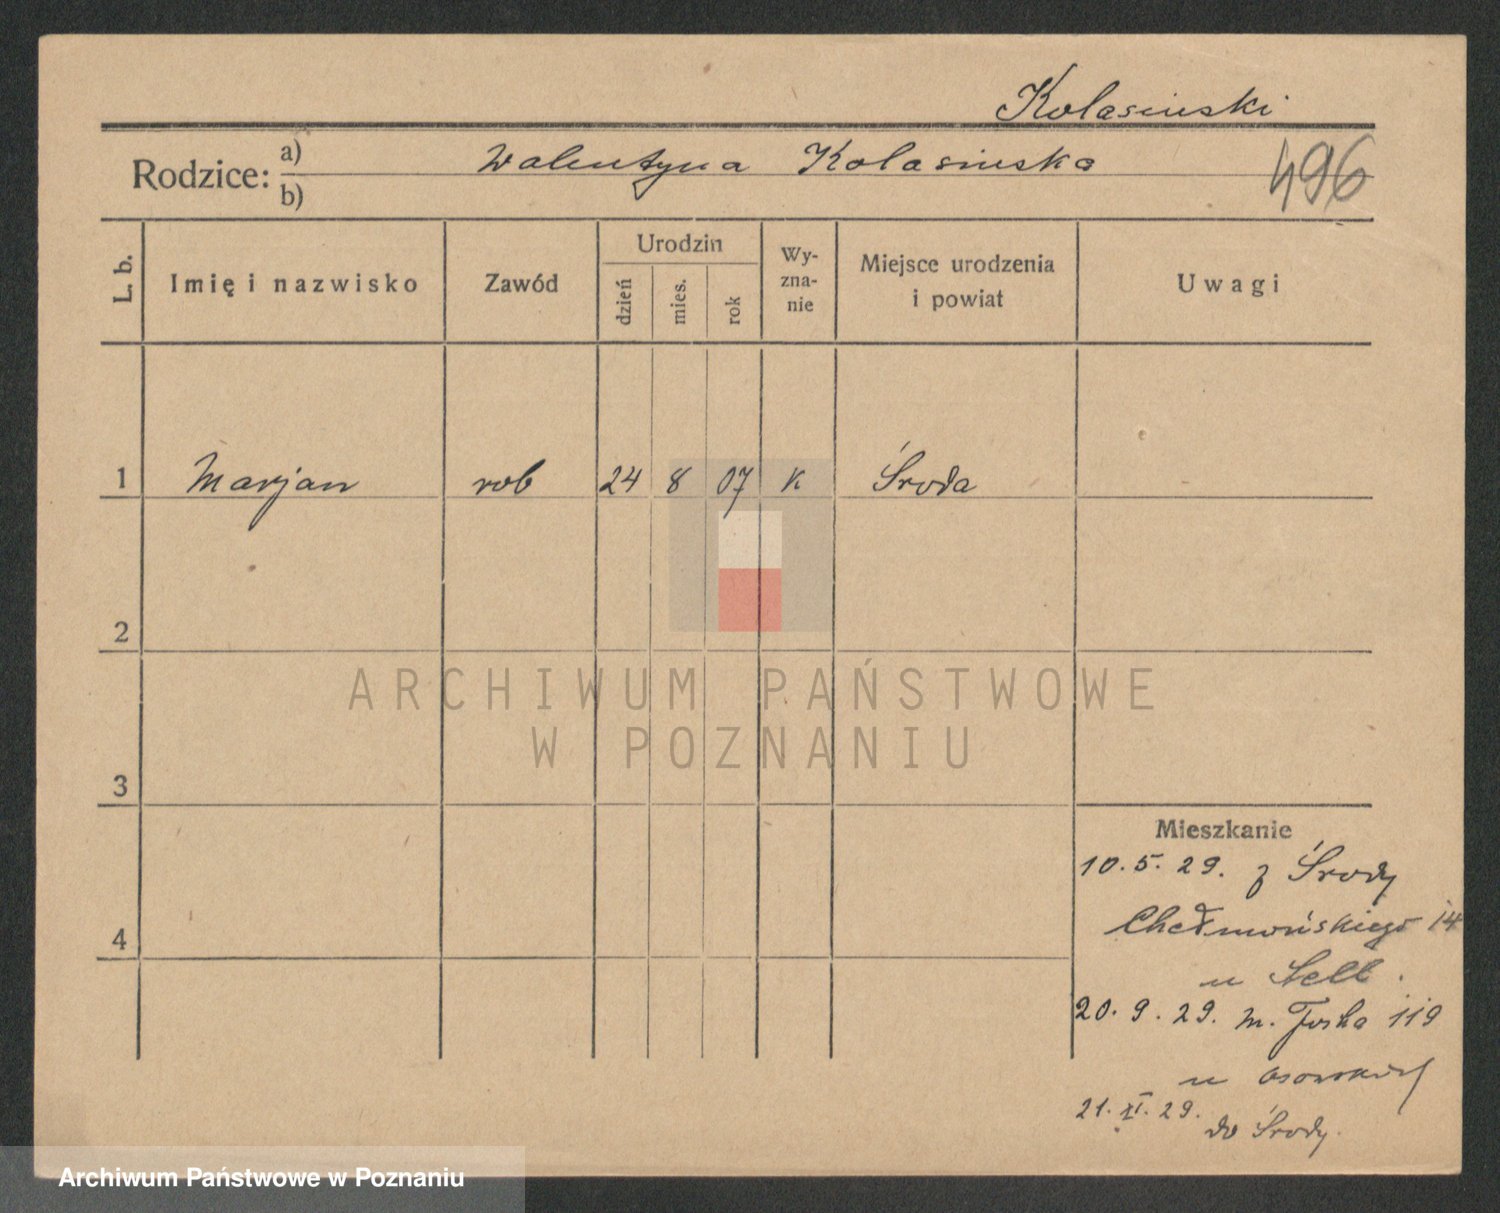 Kolasinski
Rodzice: a) Walentyna Kolasinska
b)
496
L. b.
Imię i nazwisko
Zawód
Urodzin
dzień
mies.
rok
Wy-
zna-
nie
Miejsce urodzenia
i powiat
Uwagi
1 Marjan rob 24 8 07 K Środa
2
3
4
Mieszkanie
10.5.29. z Środy
Chełmońskiego 14
u Sell.
20.9.29. M. Focha 119
u
21.XI.29.
do Środy.
ARCHIWUM PAŃSTWOWE
W POZNANIU
Archiwum Państwowe w Poznaniu